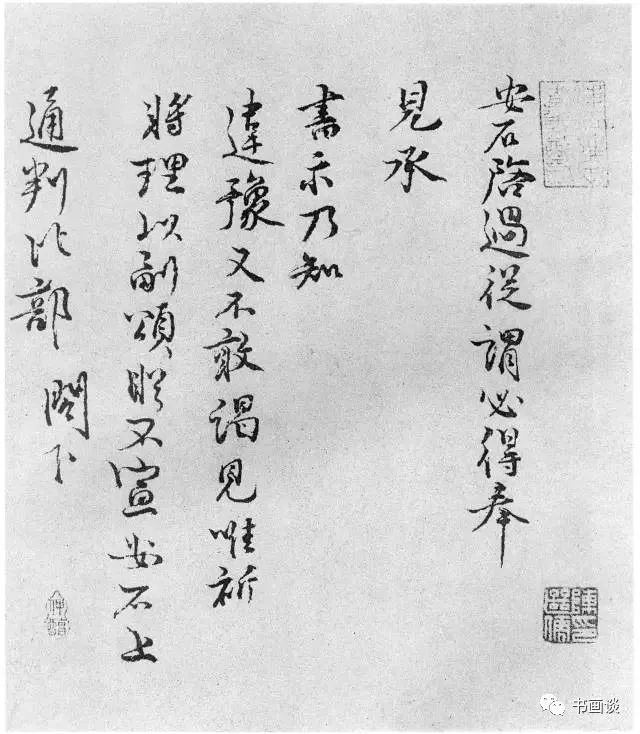 安石啓過從謂必得奉
見承
書示乃知
違豫又不敢謁見唯祈
將理以副頌眤不宣安石上
通判比部 閤下
书画谈